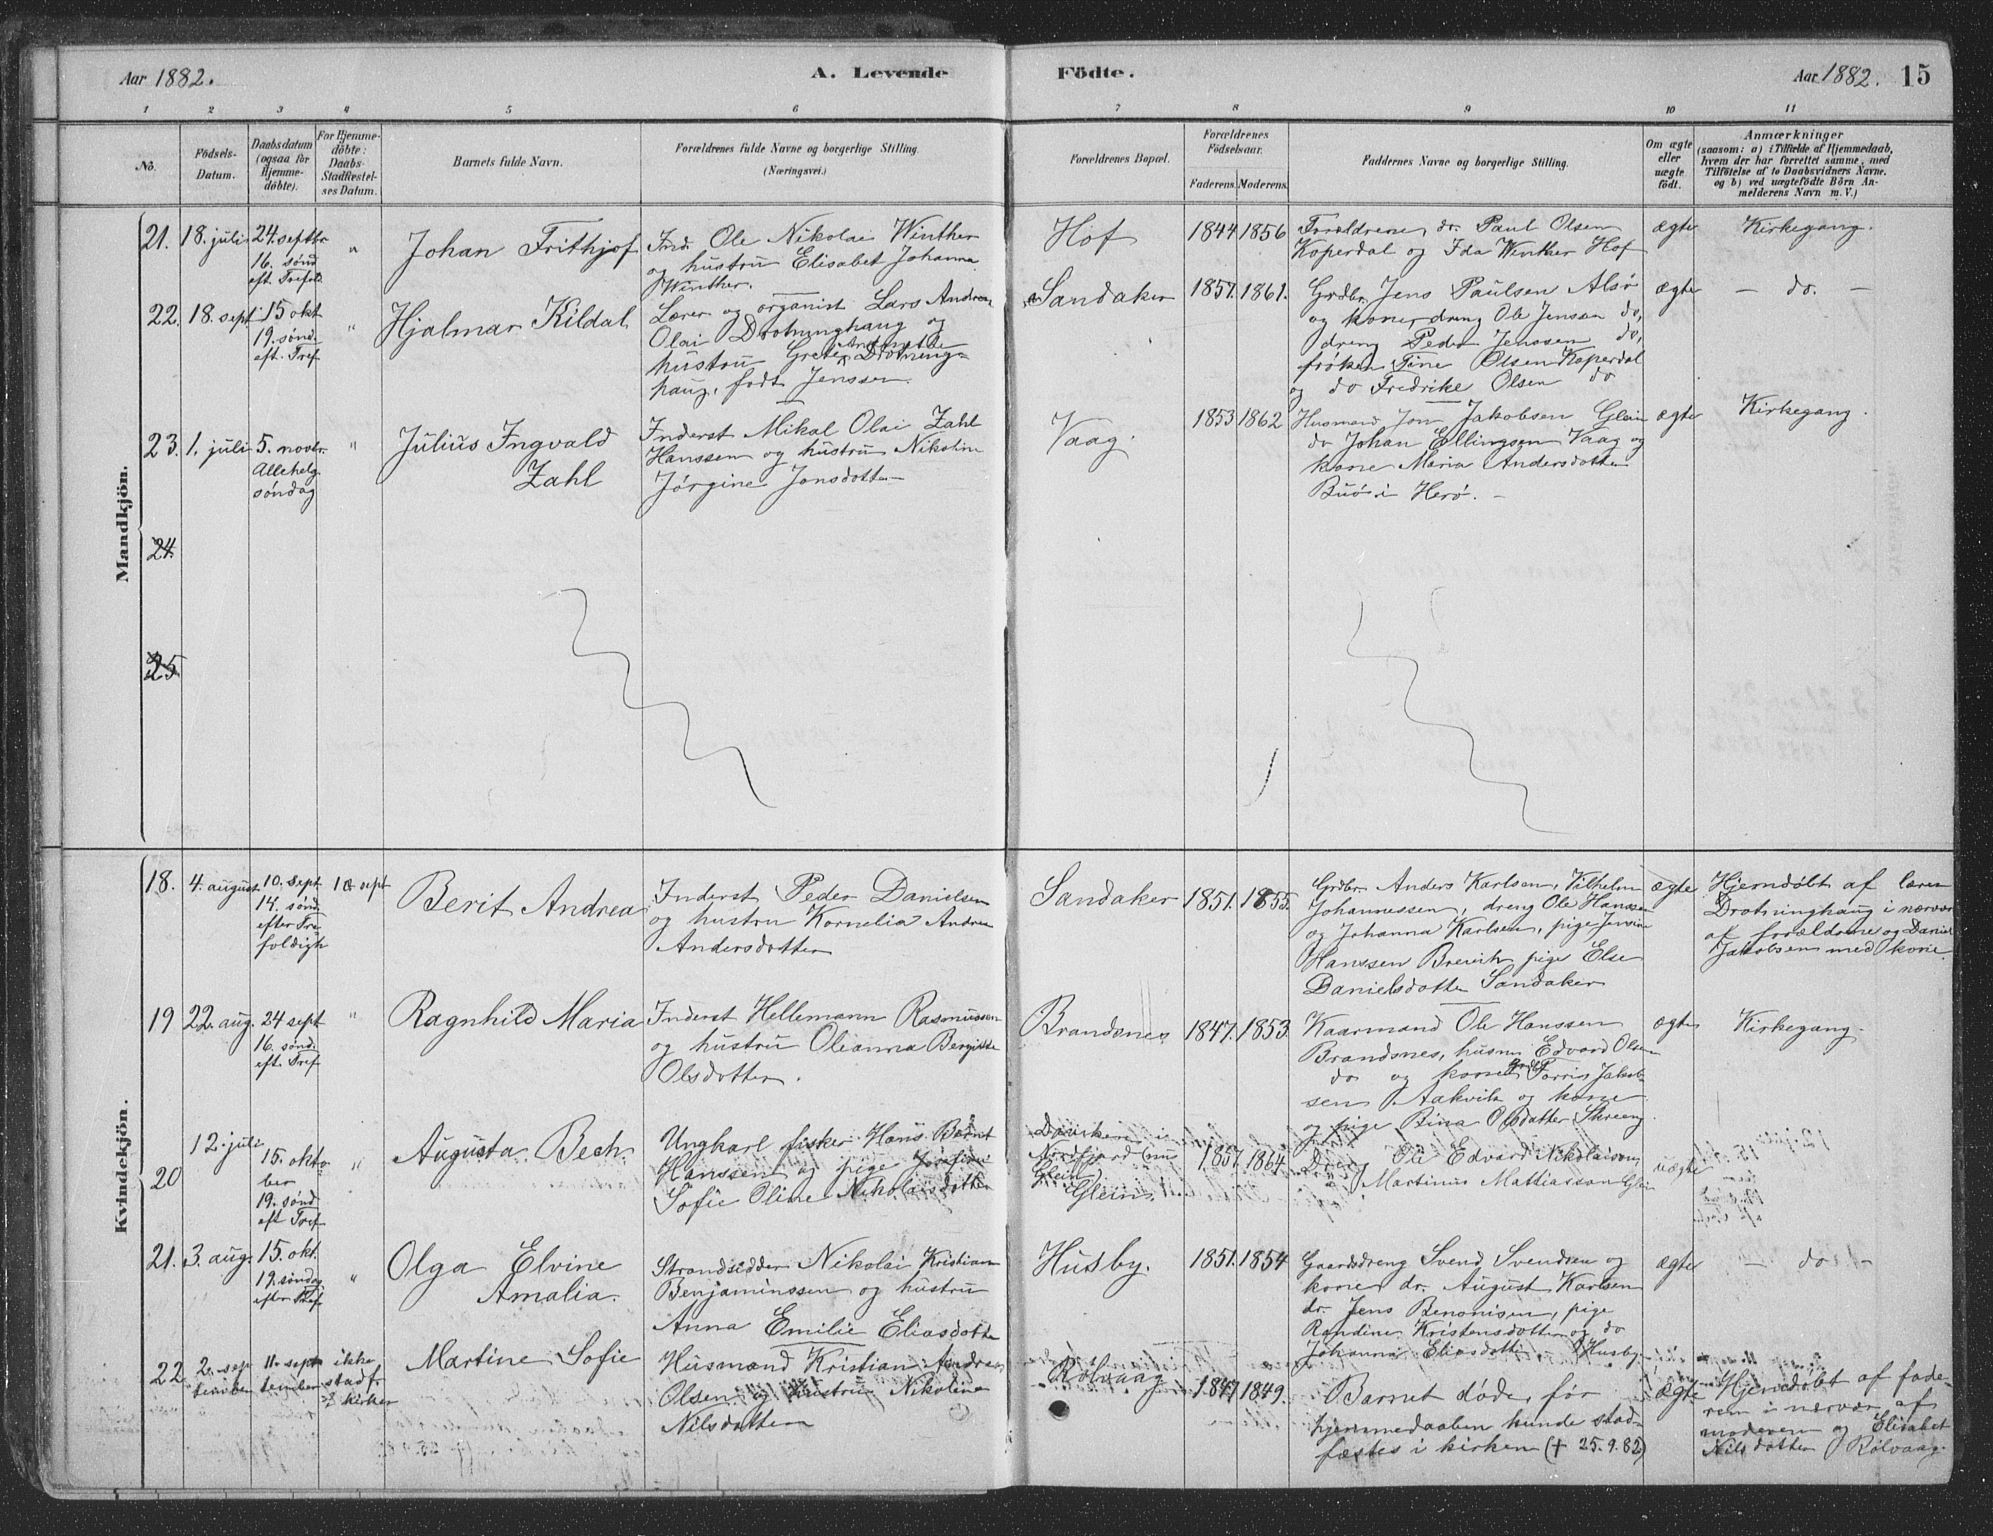 Aar 1882.
A. Levende
Födte.
Aar 1882.
15
1 2 3 4 5 6 7 8 9 10 11
No.
Födsels-
Datum.
Daabsdatum
(ogsaa for
Hjemme-
döbte).
For Hjemme-
döbte:
Daabs-
Stadfæstel-
ses Datum.
Barnets fulde Navn.
Forældrenes fulde Navne og borgerlige Stilling.
(Næringsvei.)
Forældrenes Bopæl.
Forældrenes
Födselsaar.
Faderens. Moderens.
Faddernes Navne og borgerlige Stilling.
Om ægte
eller
uægte
födt.
Anmærkninger
(saasom: a) i Tilfælde af Hjemmedaab,
hvem der har forrettet samme, med
Tilföielse af to Daabsvidners Navne.
og b) ved uægtefödte Börn An-
melderens Navn m. V.)
Mandkjön.
21.
18. juli
24. septbr
16. sønd.
eft. Trefold.
"
Johan Frithjof
Ind. Ole Nikolai Winther
og hustru Elisabet Johanna
Winther.
Hof
1844
1856
Forældrene, dr. Paul Olsen
Koperdal og Ida Winther Hof
ægte
Kirkegang.
22.
18. sept
15 okt
19. sønd.
eft. Tref
"
Hjalmar Kildal
Lærer og organist Lars Andreas
Olai Drotninghaug og
hustru Grete Annette Drotning-
haug, født Jenssen.
Sandaker
1857.
1861.
Grdbr. Jens Paulsen Alsø
og kone, dreng Ole Jensen do,
dreng Peder Jenssen do,
frøken Tine Olsen Koperdal
og do Fredrike Olsen do
ægte
- do. -
23.
1. juli
5. novbr.
Allehelg.
søndag
"
Julius Ingvald
Zahl
Inderst Mikal Olai Zahl
Hanssen og hustru Nikoline
Jørgine Jonsdotter
Vaag.
1853
1862
Husmand Jon Jakobsen Glein
do Johan Ellingsen Vaag og
kone Maria Andersdotter
Buø i Herø. -
ægte
Kirkegang.
24.
25
Kvindekjön.
18.
4. august
10. sept.
14. sønd.
efter Tre-
foldigh
10 sept
Berit Andrea
Inderst Peder Danielsen
og hustru Kornelia Andrea
Andersdotter
Sandaker
1851.
1855.
Grdbr. Anders Karlsen, Vilhelm
Johannessen, dreng Ole Hanssen
og Johanna Karlsen, pige
Hanssen Brevik pige Else
Danielsdotter Sandaker
ægte
Hjemdøbt af lærer
Drotninghaug i nærvær
af forældrene og Daniel
Jakobsen med kone.
19
22. aug.
24 sept
16. sønd.
eft. Tref
"
Ragnhild Maria
Inderst Hellemann Rasmussen
og hustru Oleanna Bergitte
Olsdotter.
Brandsnes
1847.
1853.
Kaarmand Ole Hanssen
Brandsnes, husm. Edvard Olsen
do og kone, Torris Jakob-
sen Aakvik og kone
og pige Bina Olsdatter Skreeng
ægte
Kirkegang.
20
12. juli
15. okto-
ber
19. sønd
eft Tref
"
Augusta Bech
Ungkarl fisker Hans Bernt
Hanssen og pige Josefine
Sofie Oline Nikolaisdotter
Daviken i
Nordfjord
Glein
Glein.
1857
1864
Ole Edvard Nikolaisen,
Martinus Mathiassen Glein
uægte
21.
3. aug.
15. okt.
19. søndag
efter Tref
"
Olga Elvine
Amalia.
Strandsidder Nikolai Kristian
Benjaminssen og hustru
Anna Emilie Eliasdotter
Husby.
1851.
1854
Gaardsdreng Svend Svendsen og
kone, dr. August Karlsen
dr. Jens Benonisen, pige
Randine Kristensdotter og do
Johanna Eliasdotter Husby.
ægte
- do -
22
2. sep
tember
11. sept-
tember
ikke
stadf
i kirken
Martine Sofie
Husmand Kristian Andreas
Olsen og hustru Nikoline
Nilsdotter
Rølvaag
1847
1849.
Barnet døde, før
hjemmedaaben kunde stad-
fæstes i kirken († 25.9.82)
ægte
Hjemdøbt af fade-
ren i nærvær af
moderen og Elisabet
Nilsdotter Rølvaag.